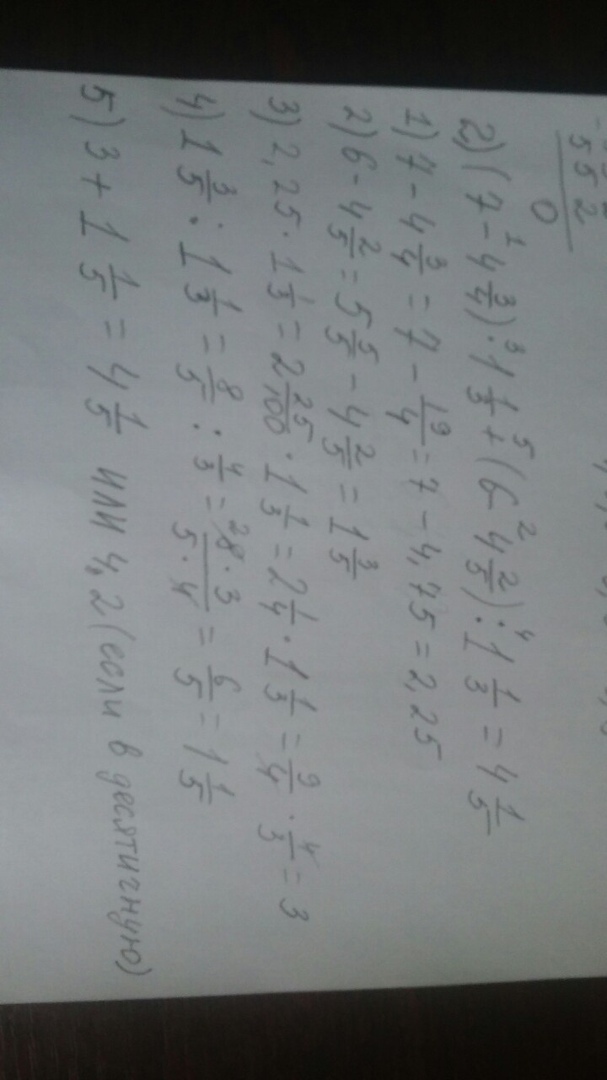 552
0
2) (7 - 4 3/4) · 1 1/3 + (6 4 2/5) : 1 1/3 = 4 1/5
1) 7 - 4 3/4 = 7 - 19/4 = 7 - 4,75 = 2,25
2) 6 - 4 2/5 = 5 5/5 - 4 2/5 = 1 3/5
3) 2,25 · 1 1/3 = 2 25/100 · 1 1/3 = 2 1/4 · 1 1/3 = 9/4 · 4/3 = 3
4) 1 3/5 : 1 1/3 = 8/5 : 4/3 = 8 · 3/5 · 4 = 6/5 = 1 1/5
5) 3 + 1 1/5 = 4 1/5 или 4,2 (если в десятичную)